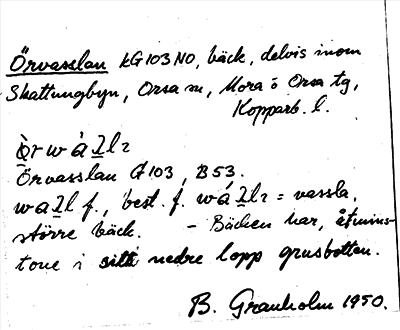 Örvasslan kG103NO, bäck, delvis inom
Skattungbyn, Orsa sn, Mora o Orsa tg,
Kopparb. l.
Örvasslan G103, B53.
f., best. f. = vassla,
större bäck. – Bäcken har, åtmins-
tone i sitt nedre lopp grusbotten.
B. Granholm 1950.